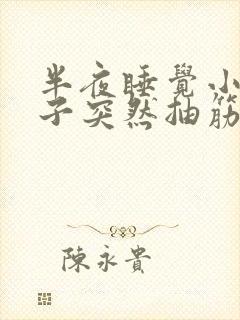 半夜睡覺小
子突然抽筋
陳永貴